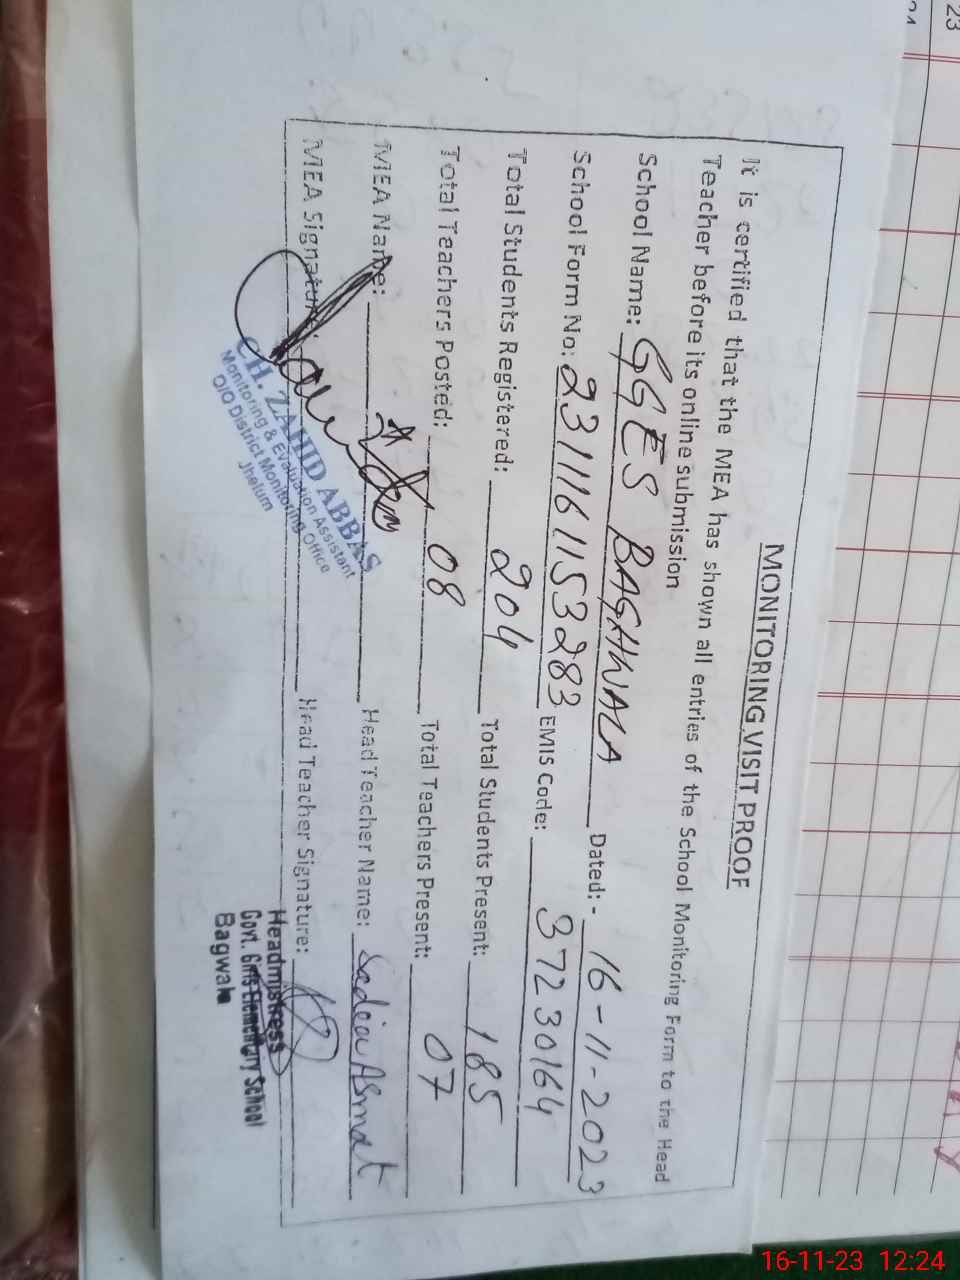 MONITORING VISIT PROOF
It is certified that the MEA has shown all entries of the School Monitoring Form to the Head
Teacher before its online submission
School Name: GGES BAGHWALA Dated:- 16-11-2023
School Form No: 2311161153283 EMIS Code: 37230164
Total Students Registered: 204 Total Students Present: 185
Total Teachers Posted: 08 Total Teachers Present: 07
MEA Name: Head Teacher Name: Sadia Asmat
MEA Signature: Head Teacher Signature:
CH. ZAHID ABBAS
Monitoring & Evaluation Assistant
O/O District Monitoring Office
Jhelum
Headmistress
Govt. Girls Elementary School
Bagwala
23
24
16-11-23 12:24